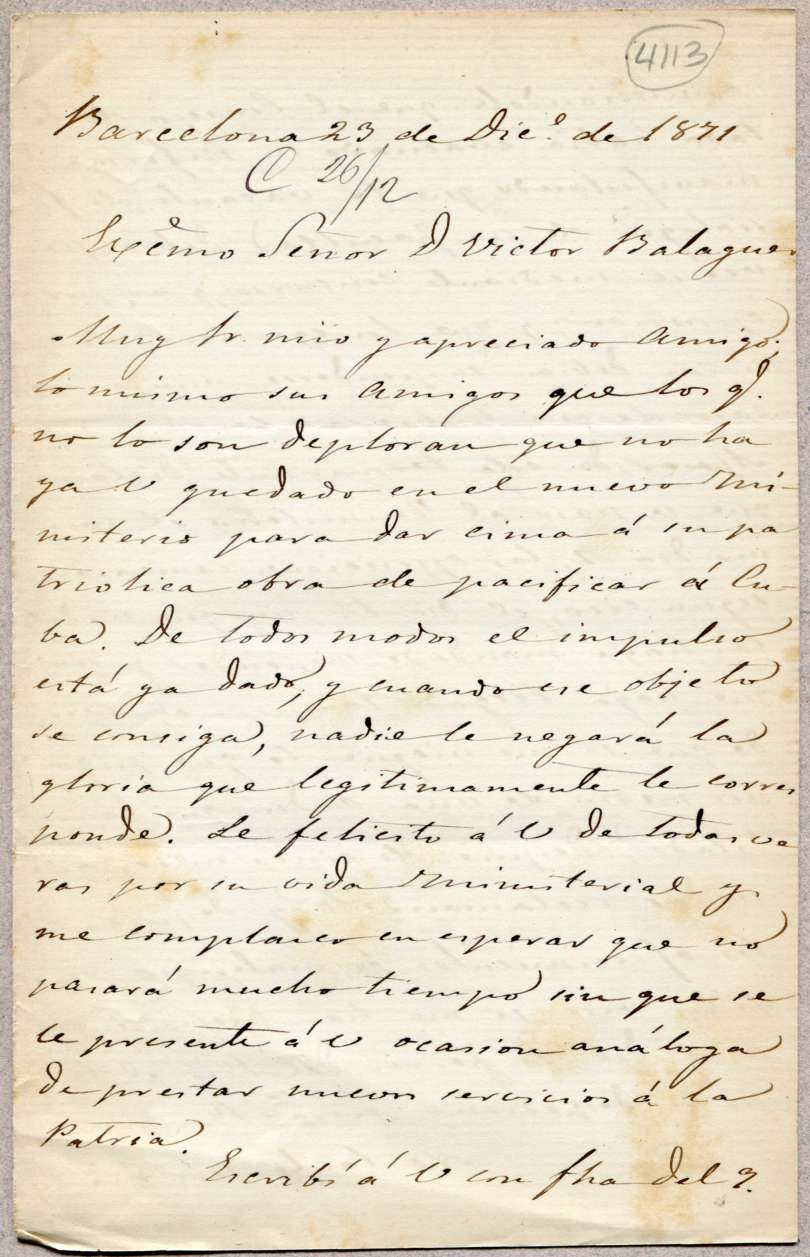 4113
Barcelona 23 de Dic.º de 1871
C 26/12
Exc̊mo Señor D Victor Balaguer
Muy Sr. mio y apreciado Amigo;
lo mismo sus Amigos que los q.
no lo son deploran que no ha
ya V quedado en el nuevo Mi-
nisterio para dar cima á su pa
triotica obra de pacificar á Cu-
ba. De todos modos el impulso
está ya dado, y cuando ese objeto
se consiga, nadie le negará la
gloria que legitimamente le corres
ponde. Le felicito á V de todas ve
ras por su vida Ministerial y
me complazco en esperar que no
pasará mucho tiempo sin que se
le presente á V ocasion análoga
de prestar nuevos servicios á la
Patria.
Escribí á V con fha del 9.